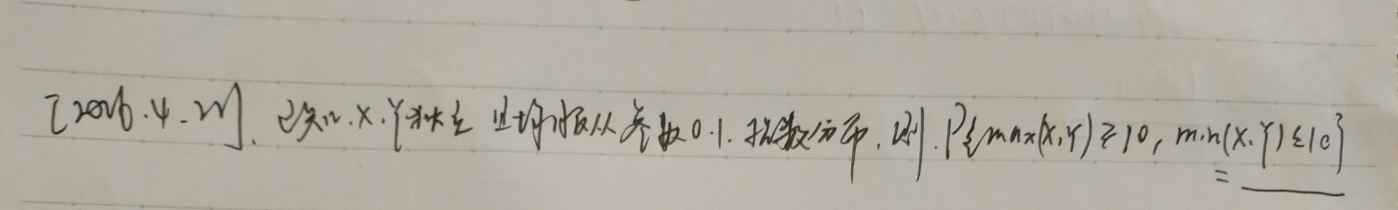 [2016.4.21]. 已知.X.Y独立 且均服从参数0.1.指数分布.则.P{max(X,Y)≥10, min(X.Y)≤10}
=